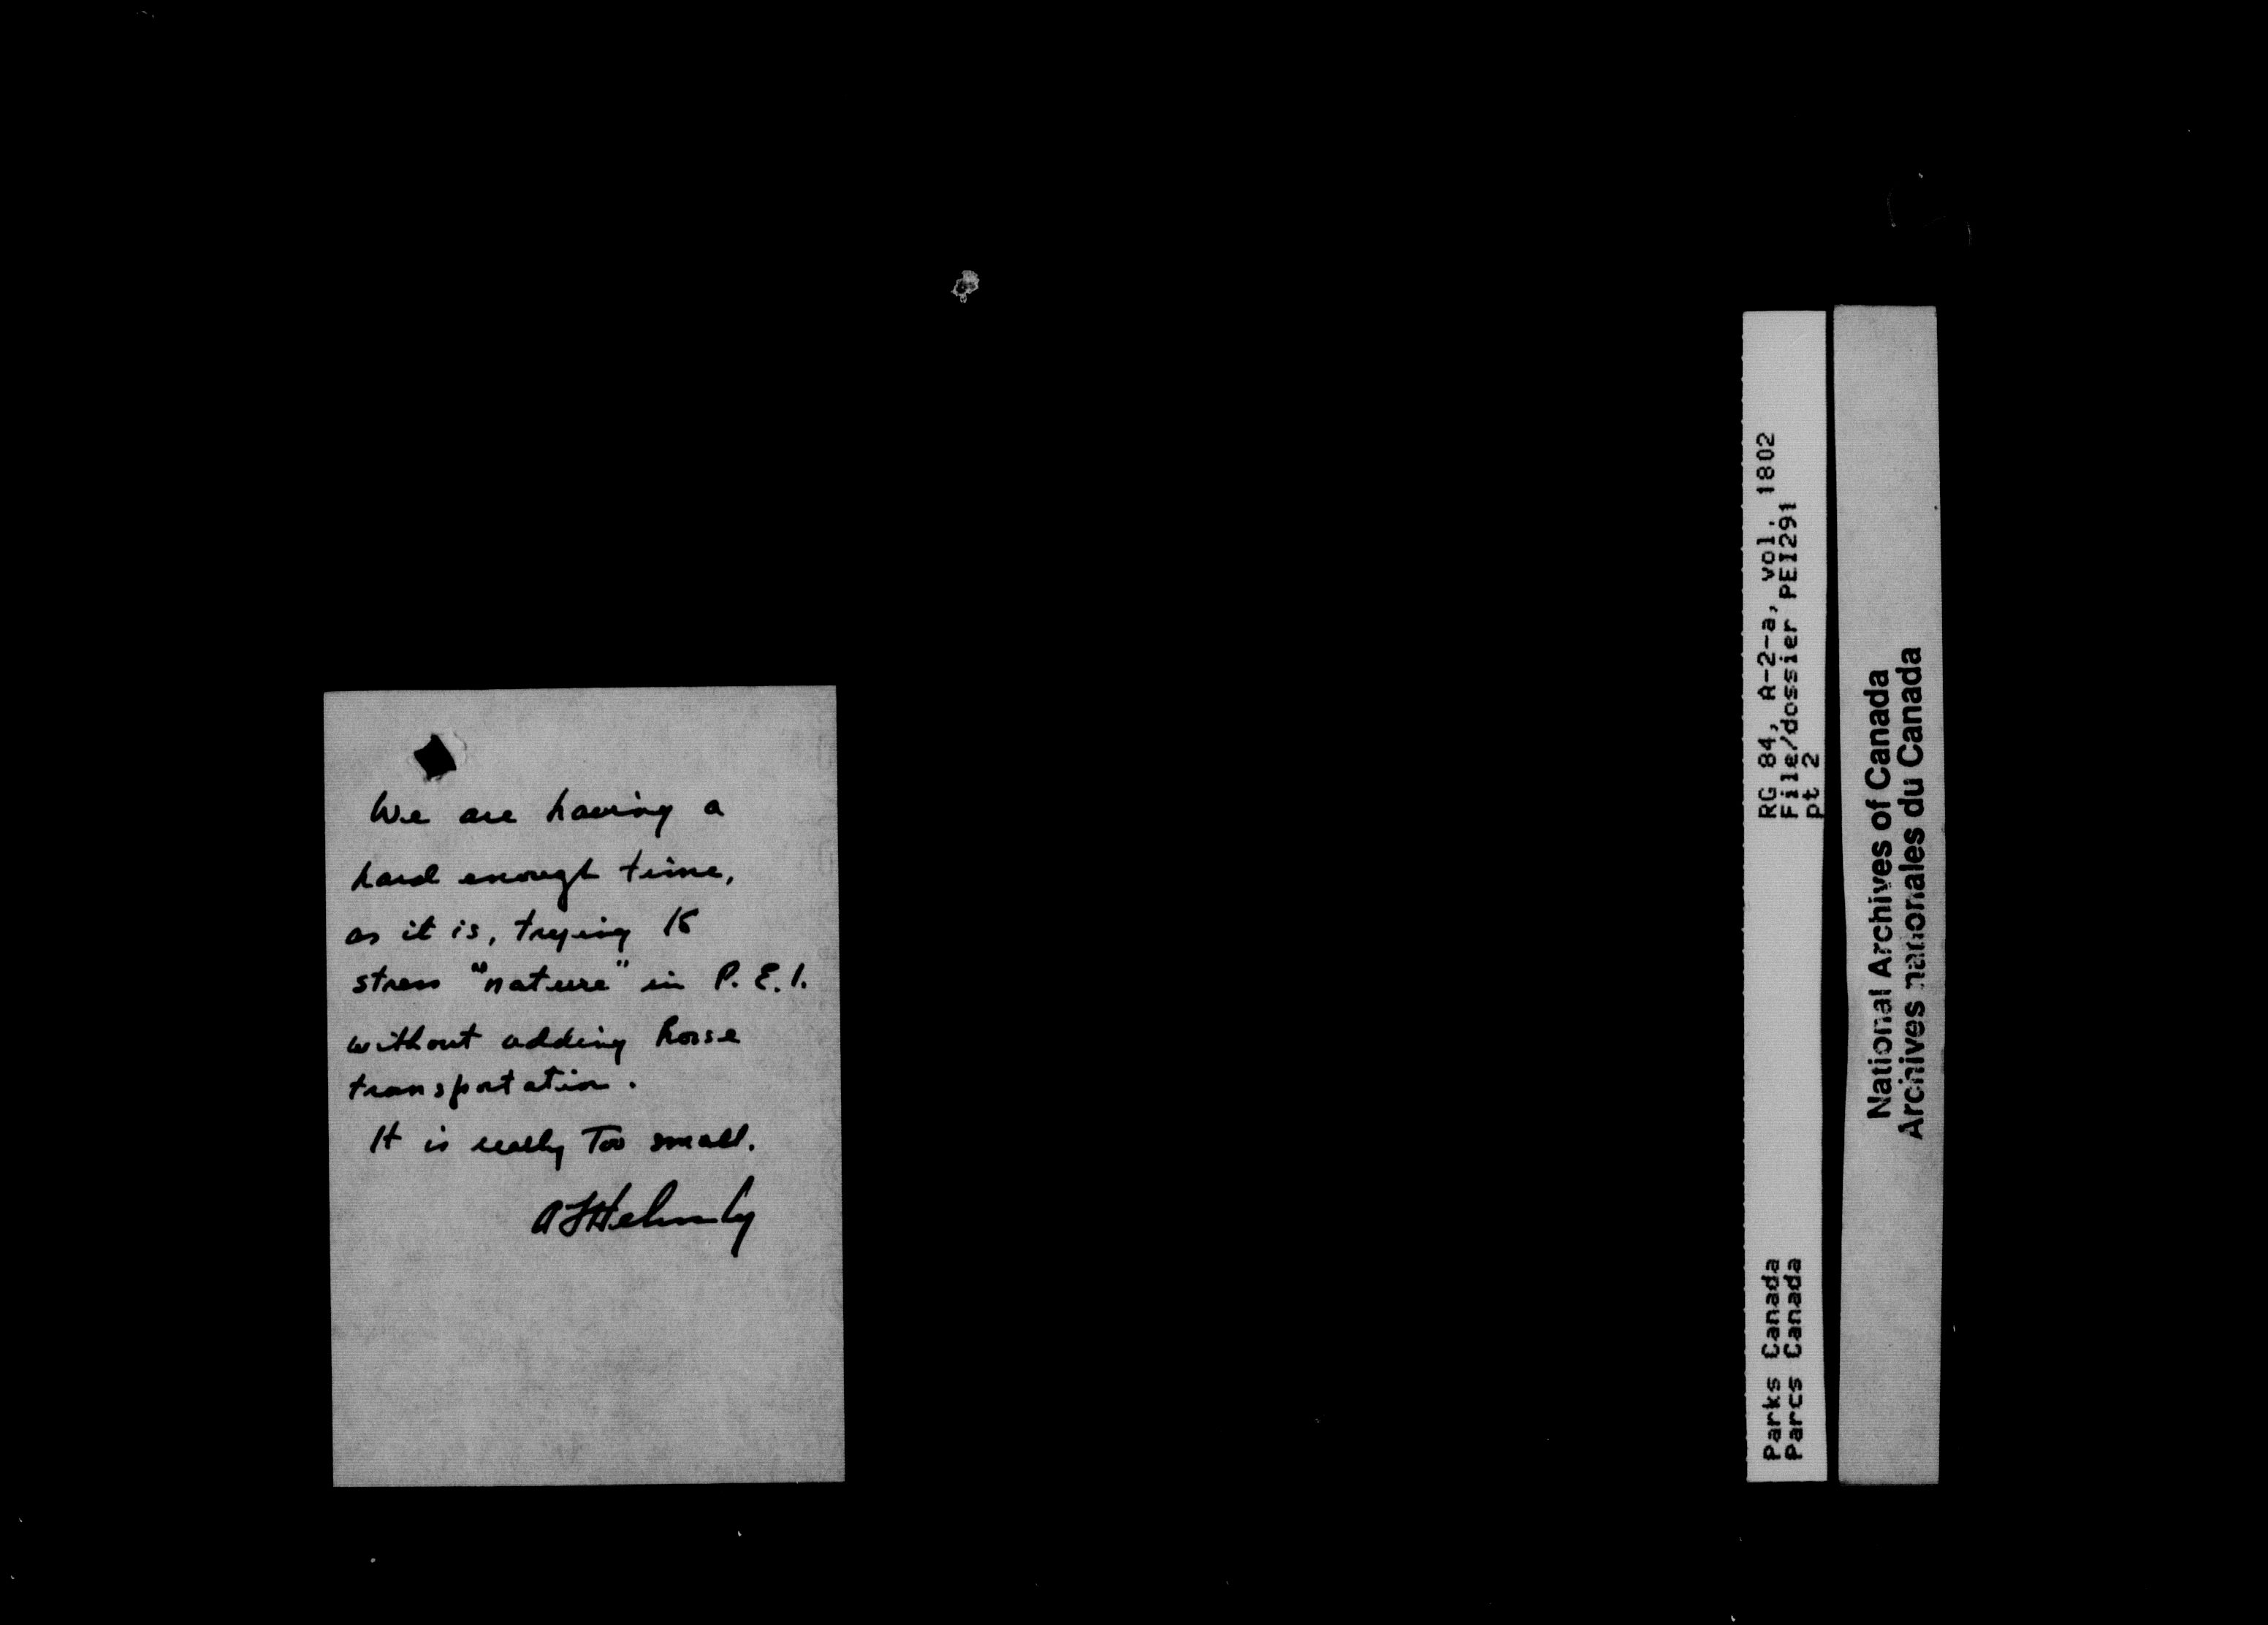 We are having a
hard enough time,
as it is, trying to
stress "nature" in P.E.I.
without adding horse
transportation.
It is really too small.
RG 84, A-2-a, vol. 1802
File/dossier PEI291
pt 2
Parks Canada
Parcs Canada
National Archives of Canada
Archives nationales du Canada